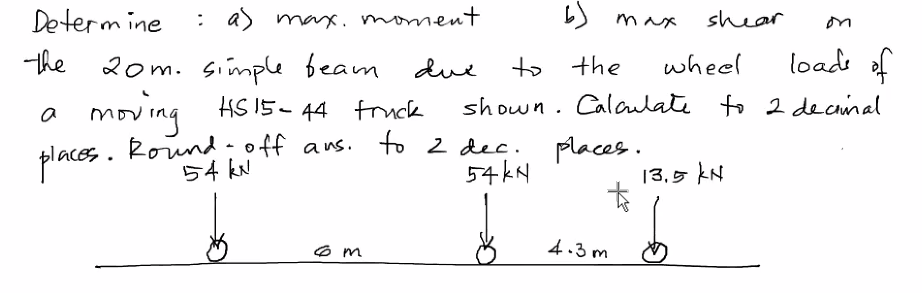 Determine : a) max. moment b) max shear on
the 20m. simple beam due to the wheel loads of
a moving HS15-44 truck shown. Calculate to 2 decimal
places. Round-off ans. to 2 dec. places.
54 kN 54 kN 13.5 kN
6 m 4.3 m